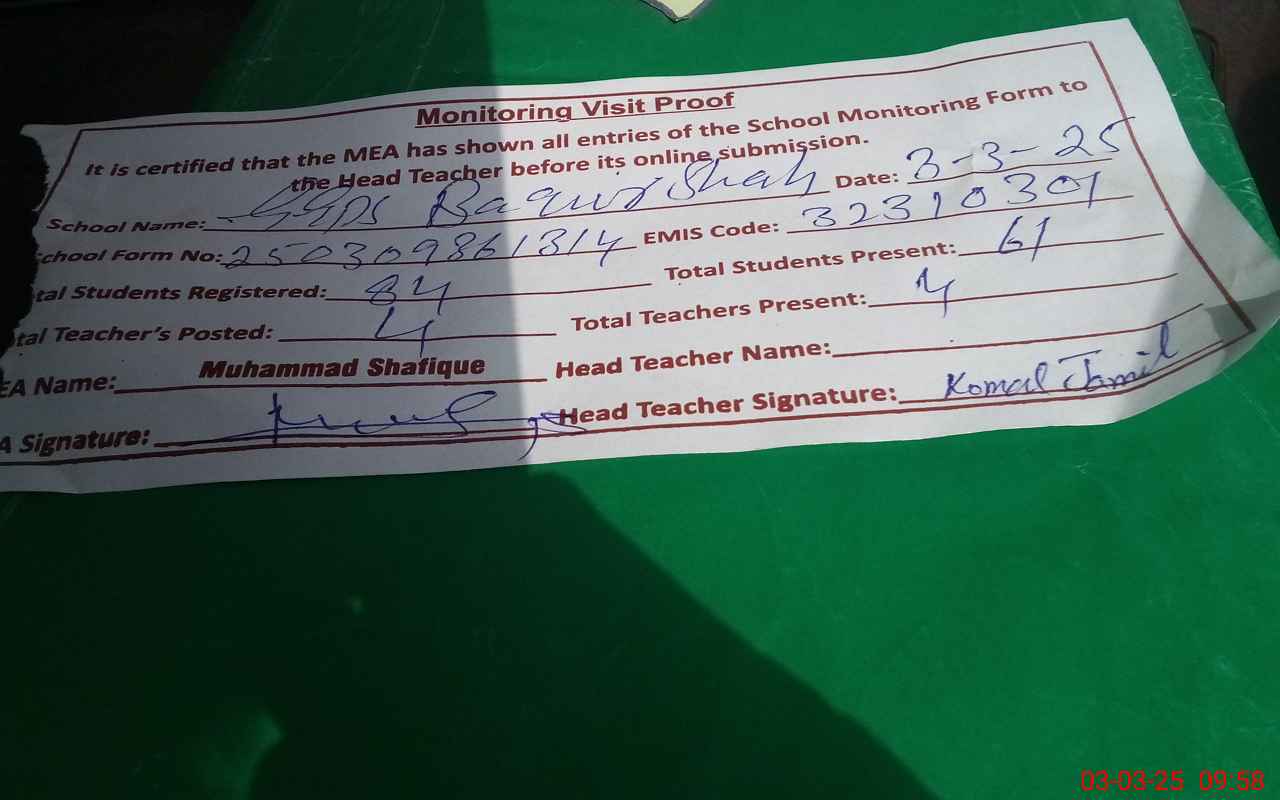 Monitoring Visit Proof
It is certified that the MEA has shown all entries of the School Monitoring Form to
the Head Teacher before its online submission.
School Name: GGPS Baqir Shah Date: 3-3-25
chool Form No: 250309861314 EMIS Code: 32310301
tal Students Registered: 84 Total Students Present: 61
tal Teacher's Posted: 4 Total Teachers Present: 4
EA Name: Muhammad Shafique Head Teacher Name:
A Signature: Head Teacher Signature: Komal Jamil
03-03-25 09:58